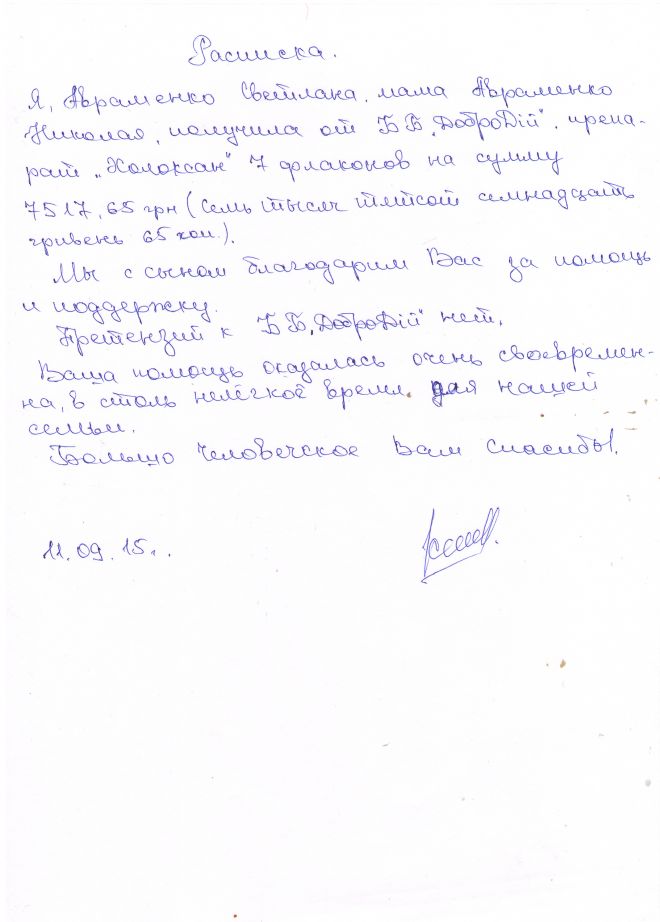 Расписка.
Я, Авраменко Светлана, мама Авраменко
Николая, получила от ББ "ДоброДій", препа-
рат "Холоксан" 7 флаконов на сумму
7517,65 грн (семь тысяч пятсот семнадцать
гривень 65 коп.).
Мы с сыном благодарим Вас за помощь
и поддержку.
Претензий к ББ "ДоброДій" нет.
Ваша помощь оказалась очень своевремен-
на, в столь нелёгкое время для нашей
семьи.
Большо человечское Вам спасибы!
11.09.15г.